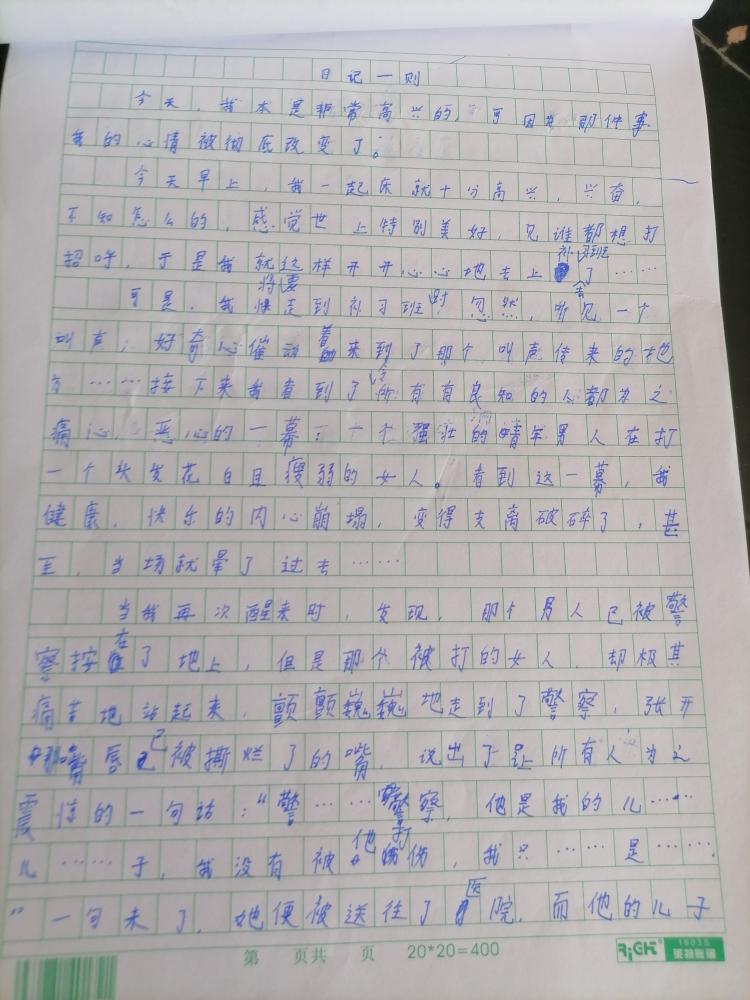 日记一则
今天，我本是非常高兴的，可因为那件事
我的心情被彻底改变了。
今天早上，我一起床就十分高兴，兴奋，
不知怎么的，感觉世上特别美好，见谁都想打
招呼，于是我就这样开开心心地去上补习班了……
可是，我将要快走到补习班时忽然，听见一个
叫声；好奇心催动着来到了那个叫声传来的地
方……接下来我看到了令所有有良知的人都为之
痛心，恶心的一幕：一个强壮的青年男人在打
一个头发花白且瘦弱的女人。看到这一幕，我
健康，快乐的内心崩塌，变得支离破碎了，甚
至，当场就晕了过去……
当我再次醒来时，发现，那个男人已被警
察按在了地上，但是那个被打的女人，却极其
痛苦地站起来，颤颤巍巍地走到了警察，张开
那嘴唇已被撕烂了的嘴，说出了让所有人为之
震惊的一句话：“警……警察，他是我的儿……
儿……子，我没有被他打伤，我只……是……
”一句未了，她便被送往了医院，而他的儿子
第 页共 页 20*20=400
16035